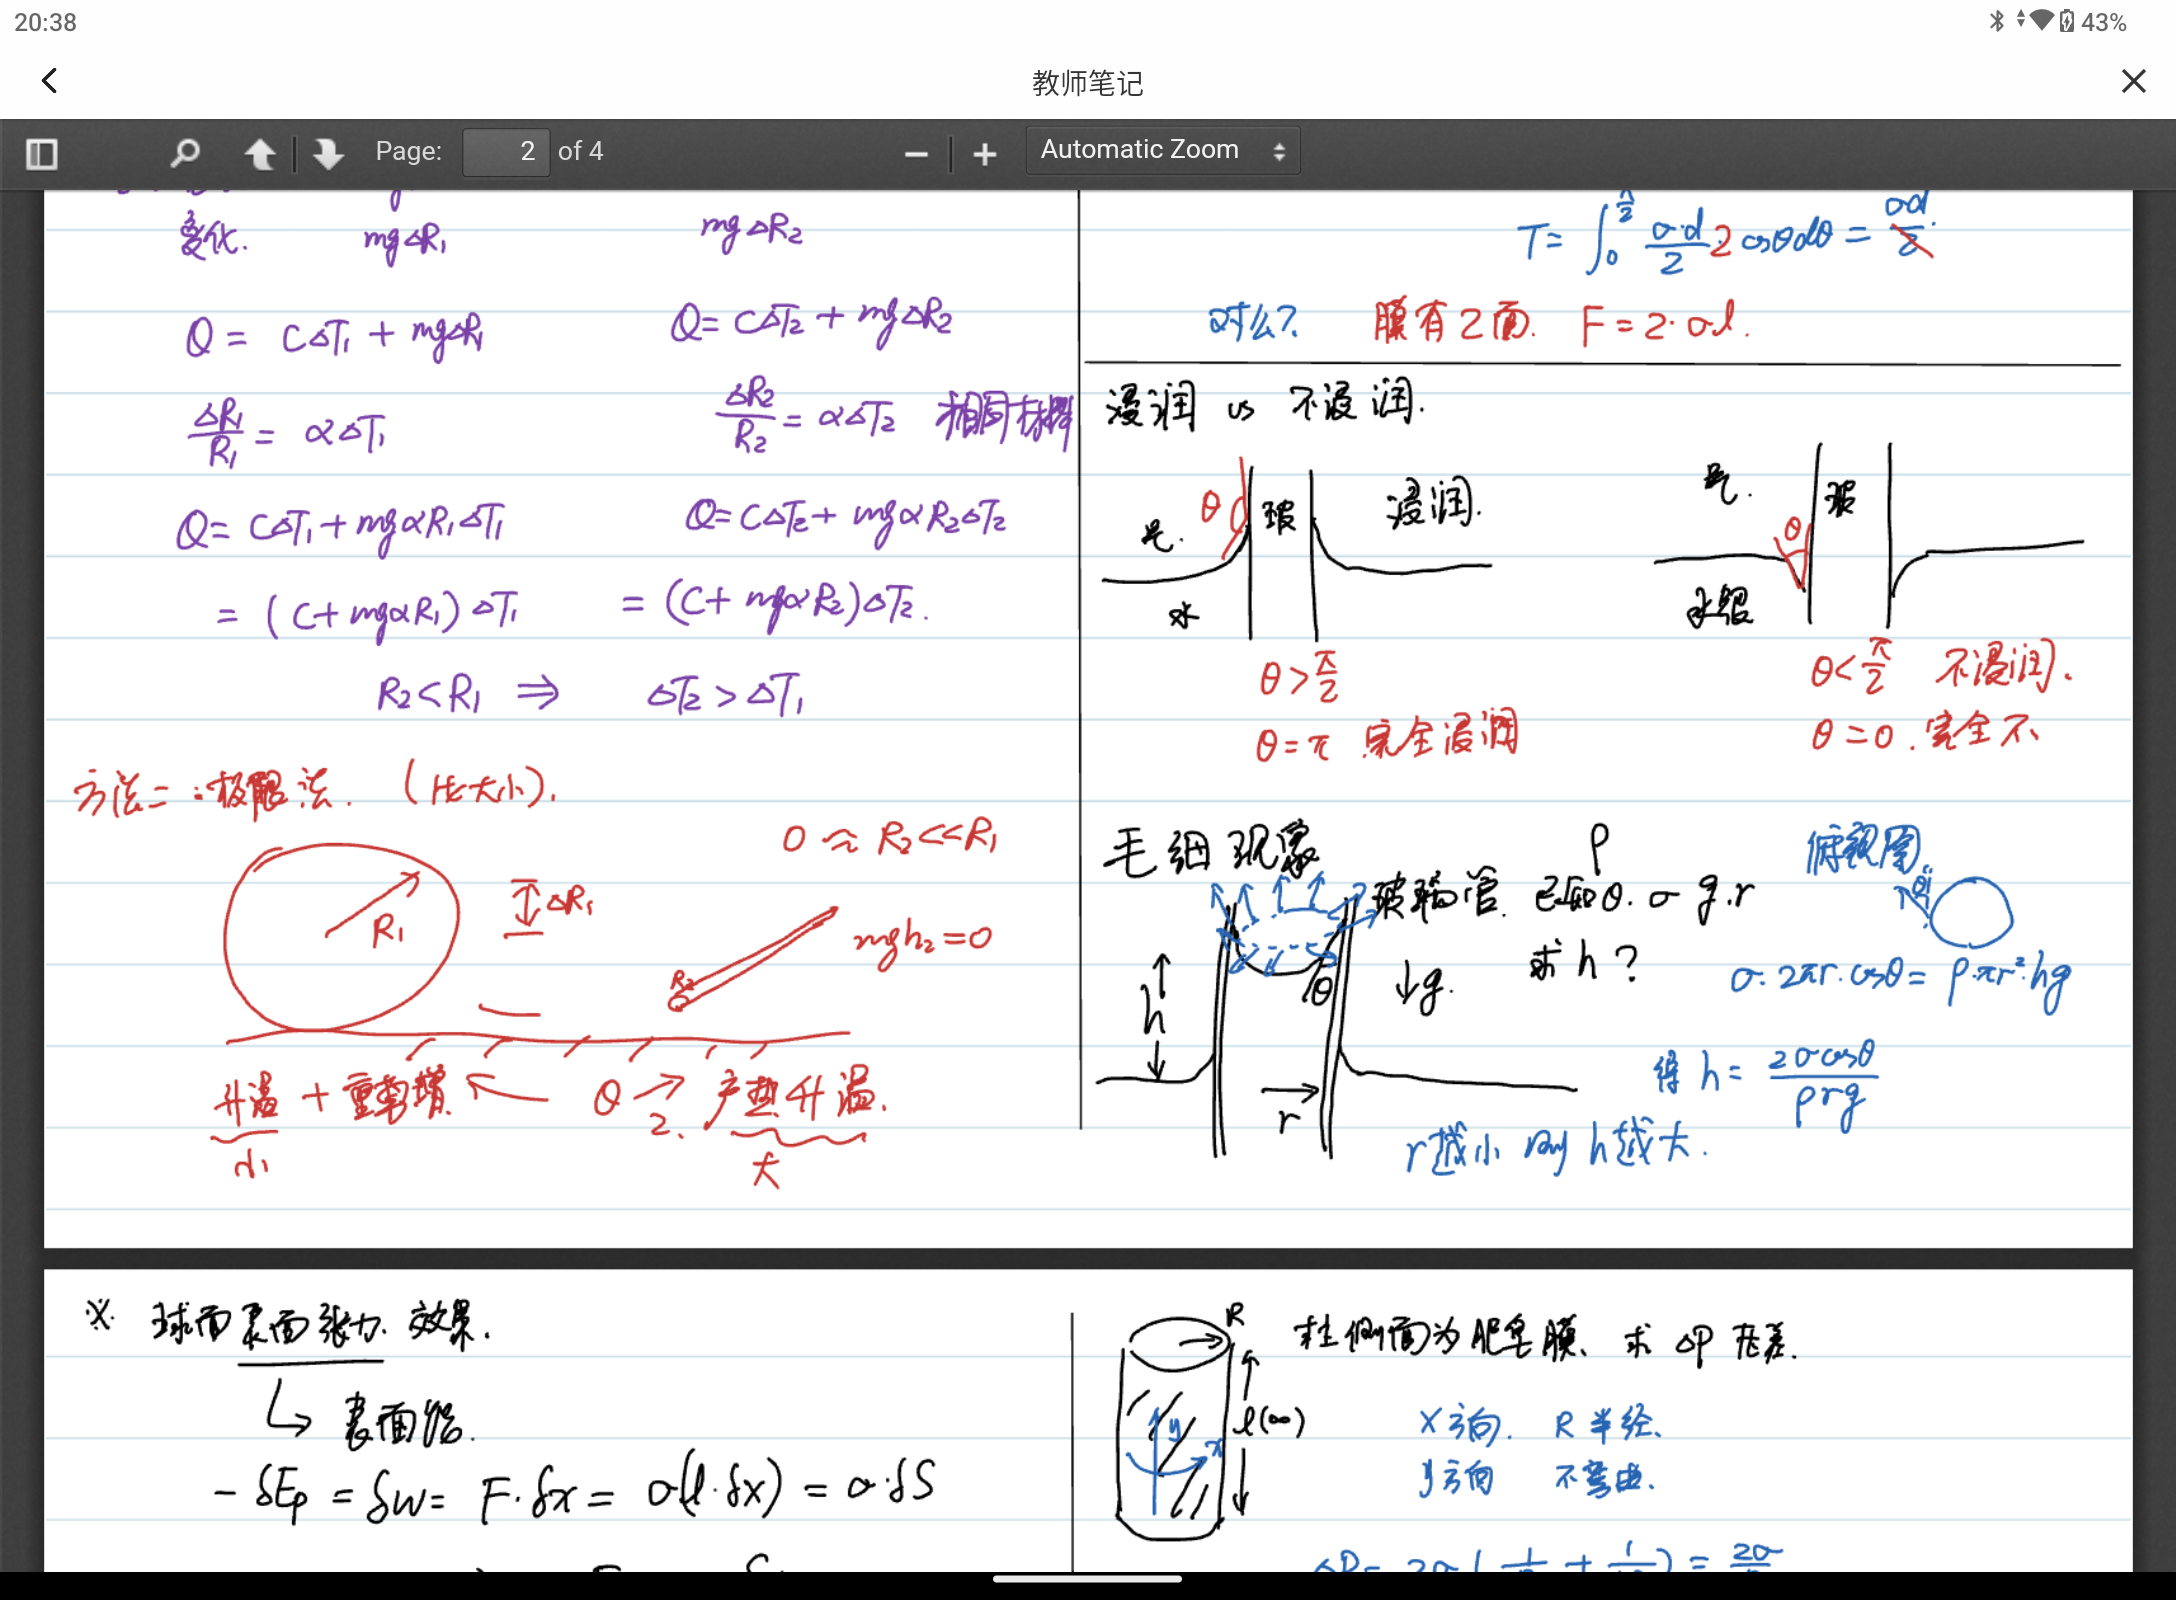 20:38
43%
教师笔记
Page: 2 of 4
Automatic Zoom
变化. mg△R₁ mg△R₂
Q = C△T₁ + mg△R₁ Q = C△T₂ + mg△R₂
△R₁/R₁ = α△T₁ △R₂/R₂ = α△T₂ 相同材料
Q = C△T₁ + mgαR₁△T₁ Q = C△T₂ + mgαR₂△T₂
= (C + mgαR₁)△T₁ = (C + mgαR₂)△T₂.
R₂ < R₁ ⇒ △T₂ > △T₁
方法二:极限法. (比大小).
0 ≈ R₂ << R₁
R₁ △R₁
R₂ mgh₂ = 0
升温 + 重势增 ← Q → 产热升温.
小 2. 大
T = ∫₀^(π/2) σ·d/2 · 2 cosθdθ = σd/2.
对么? 膜有2面. F = 2·σl.
浸润 vs 不浸润.
θ 气. 玻 浸润. 水
气. 玻 θ 水银
θ > π/2 θ < π/2 不浸润.
θ = π 完全浸润 θ = 0. 完全不
毛细现象 ρ 俯视图
玻璃管. 已知θ. σ g. r
求h?
h θ ↓g. r
σ·2πr·cosθ = ρ·πr²·hg
得 h = 2σcosθ/ρrg
r越小 则 h越大.
※ 球面表面张力. 效果.
↳ 表面能.
- δEp = δw = F·δx = σ(l·δx) = σ·δS
R 柱侧面为肥皂膜、求 △P 压差.
y x l(∞)
X方向. R半径.
y方向 不弯曲.